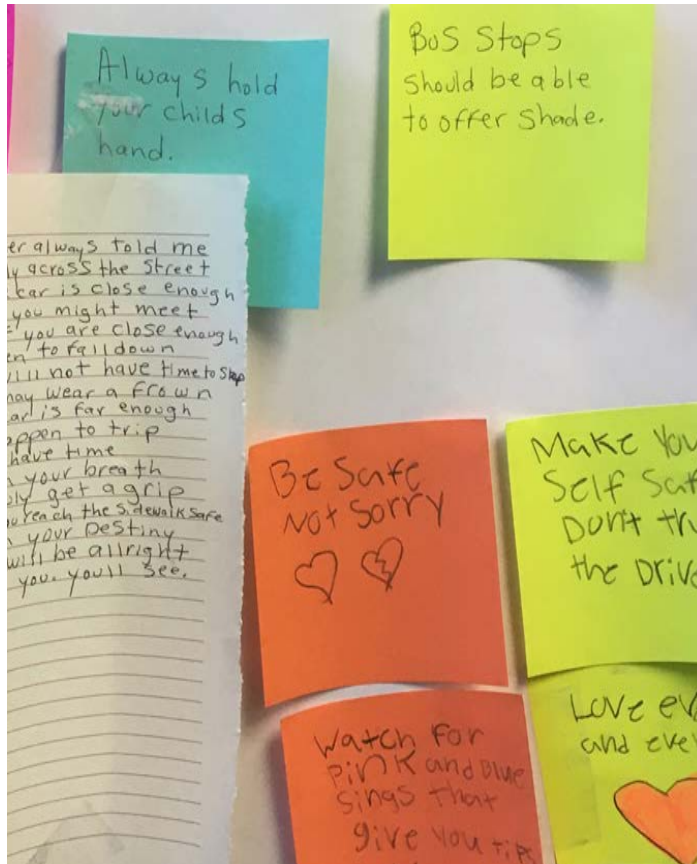 Always hold
your childs
hand.
BUS Stops
should be able
to offer Shade.
always told me
across the street
car is close enough
you might meet
you are close enough
to falldown
will not have time to stop
may wear a frown
is far enough
to trip
have time
your breath
get a grip
reach the sidewalk safe
your Destiny
will be allright
you. youll see.
Be Safe
Not Sorry
Make
Self
Don't
the
Watch For
Pink and Blue
Sings that
give you
Love
and